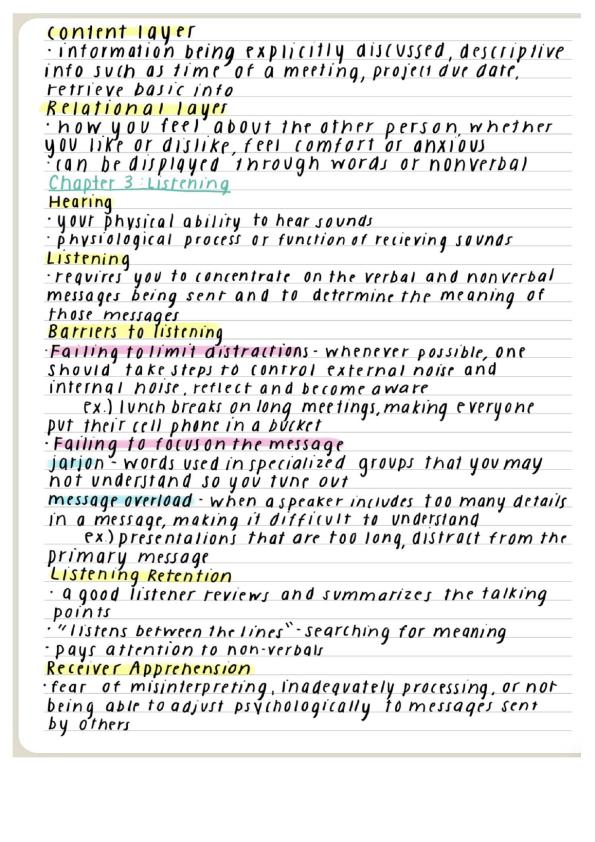 content layer
· information being explicitly discussed, descriptive
info such as time of a meeting, project due date,
retrieve basic info
Relational layer
· how you feel about the other person, whether
you like or dislike, feel comfort or anxious
· can be displayed through words or nonverbal
Chapter 3: Listening
Hearing
· your physical ability to hear sounds
· physiological process or function of recieving sounds
Listening
· requires you to concentrate on the verbal and nonverbal
messages being sent and to determine the meaning of
those messages
Barriers to listening
· Failing to limit distractions - whenever possible, one
should take steps to control external noise and
internal noise, reflect and become aware
ex.) lunch breaks on long meetings, making everyone
put their cell phone in a bucket
· Failing to focus on the message
jarjon - words used in specialized groups that you may
not understand so you tune out
message overload - when a speaker includes too many details
in a message, making it difficult to understand
ex.) presentations that are too long, distract from the
primary message
Listening Retention
· a good listener reviews and summarizes the talking
points
· "listens between the lines" - searching for meaning
· pays attention to non-verbals
Receiver Apprehension
· fear of misinterpreting, inadequately processing, or not
being able to adjust psychologically to messages sent
by others